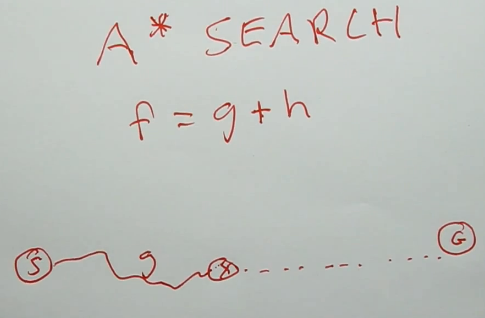 A* SEARCH
f = g + h
G
S g X